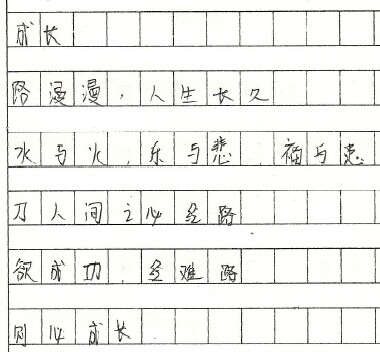 成长
路漫漫,人生长久
水与火,乐与悲,福与患
乃人间之必经路
欲成功,经难路
则必成长